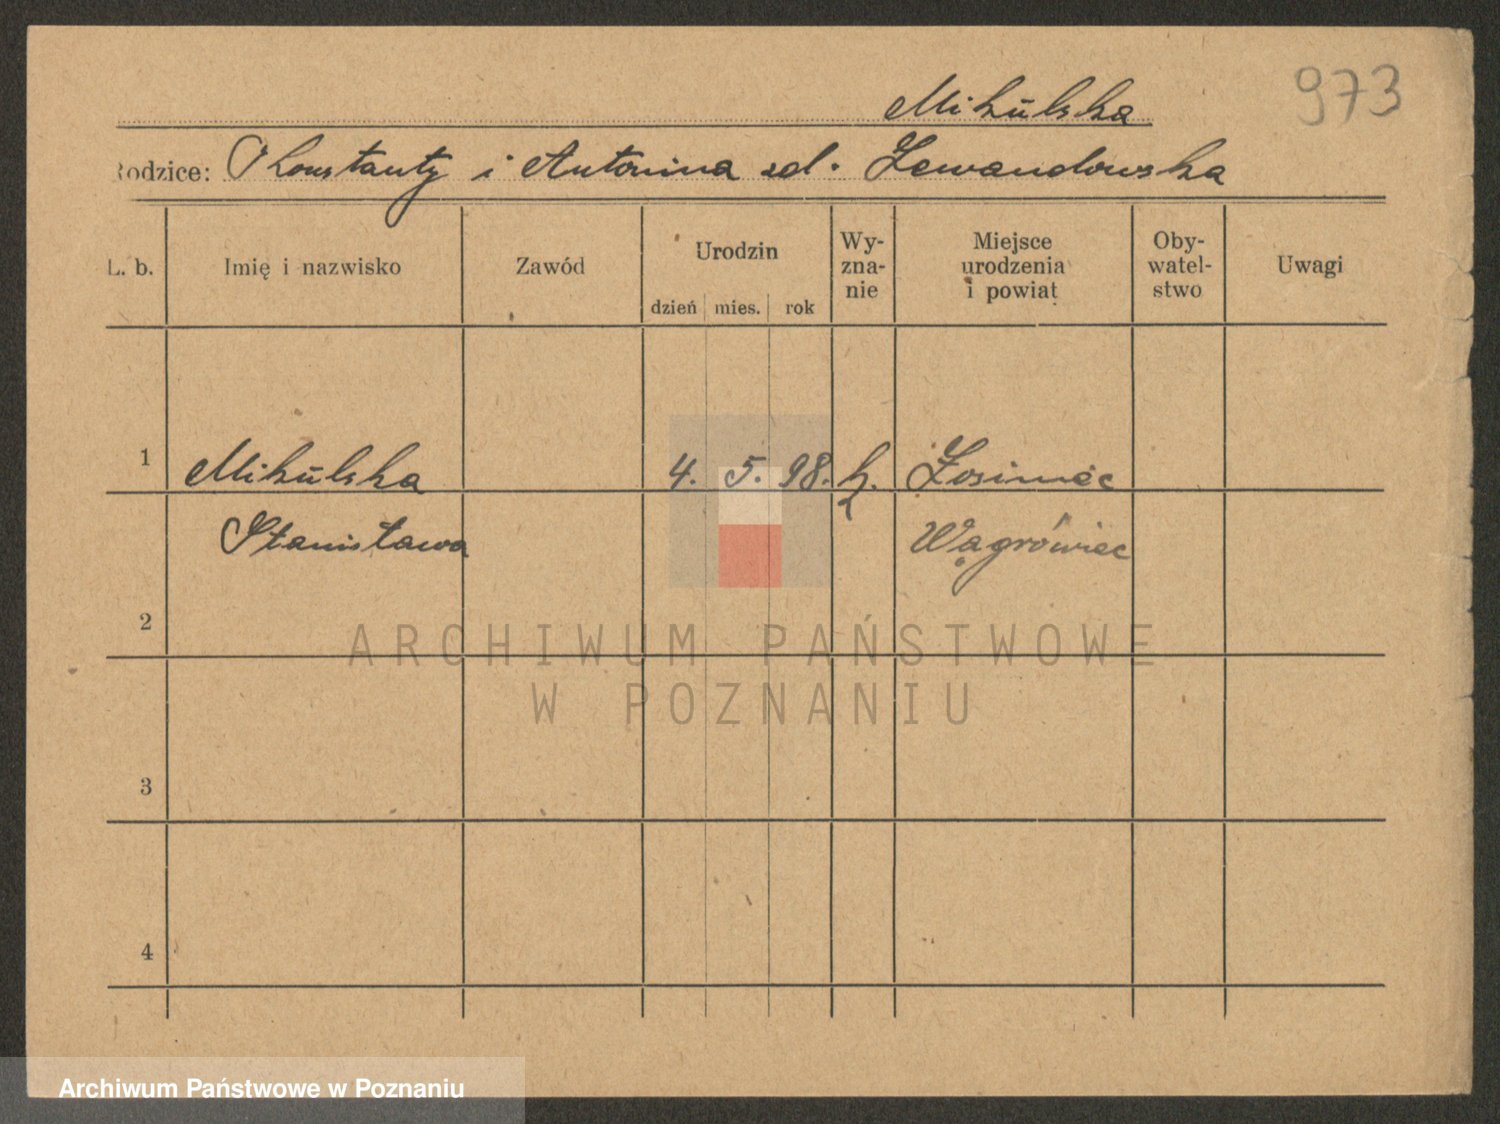 Mikulska
973
Rodzice: Konstanty i Antonina zd. Lewandowska
L. b. Imię i nazwisko Zawód Urodzin dzień mies. rok Wy-zna-nie Miejsce urodzenia i powiat Oby-watel-stwo Uwagi
1 Mikulska 4. 5. 98. k.
Stanisława Wągrówiec
2
ARCHIWUM PAŃSTWOWE
W POZNANIU
3
4
Archiwum Państwowe w Poznaniu